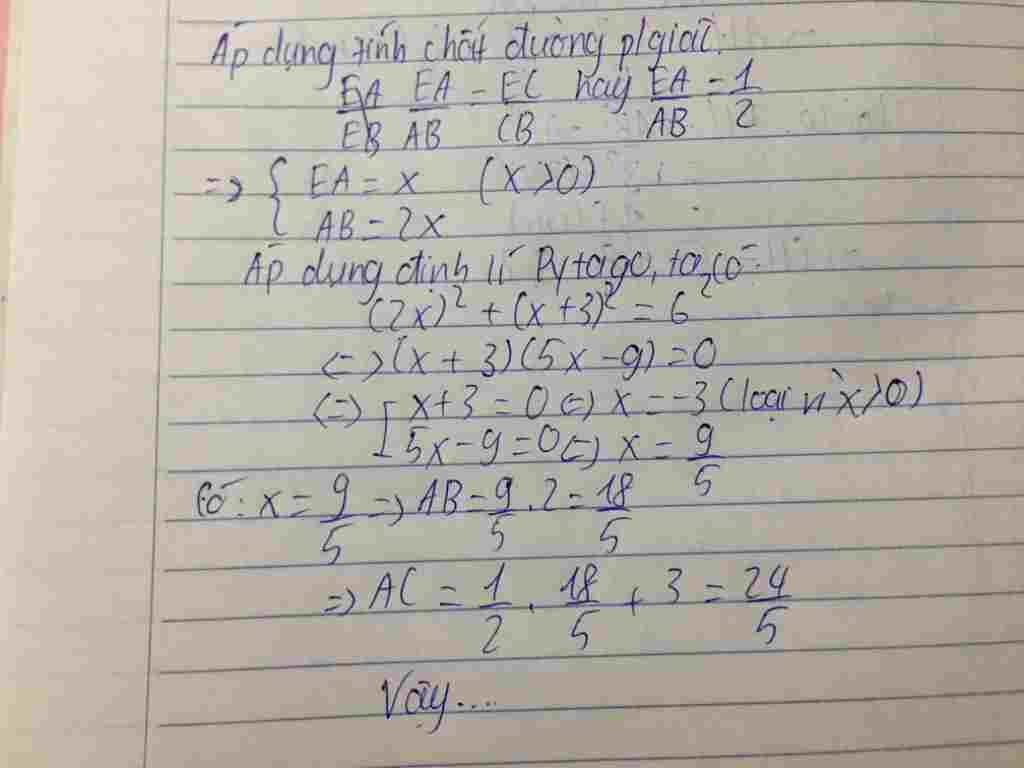 Áp dụng tính chất đường p/giác:
EA/EB EA/AB = EC/CB hay EA/AB = 1/2
=> { EA = x (x>0)
AB = 2x
Áp dụng định lí Pytago, ta có:
(2x)² + (x+3)² = 6²
<=> (x+3)(5x-9)=0
<=> [ x+3=0 <=> x=-3 (loại vì x>0)
5x-9=0 <=> x = 9/5
Có: x = 9/5 => AB = 9/5 . 2 = 18/5
=> AC = 1/2 . 18/5 + 3 = 24/5
Vậy....